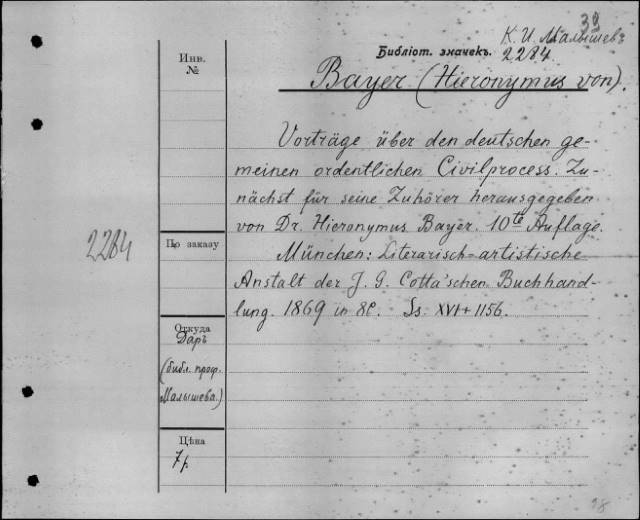 39
К. И. Малышевъ
Библіот. значекъ. 2284
Инв.
№
Bayer (Hieronymus von).
Vorträge über den deutschen ge-
meinen ordentlichen Civilprocess. Zu-
nächst für seine Zuhörer herausgegeben
von Dr. Hieronymus Bayer. 10te Auflage.
2284
По заказу
München: Literarisch=artistische
Anstalt der J. G. Cotta'schen Buchhand-
lung. 1869 in 8º. Ss. XVI+1156.
Откуда
Даръ
(библ. проф.
Малышева.)
Цѣна
7р.